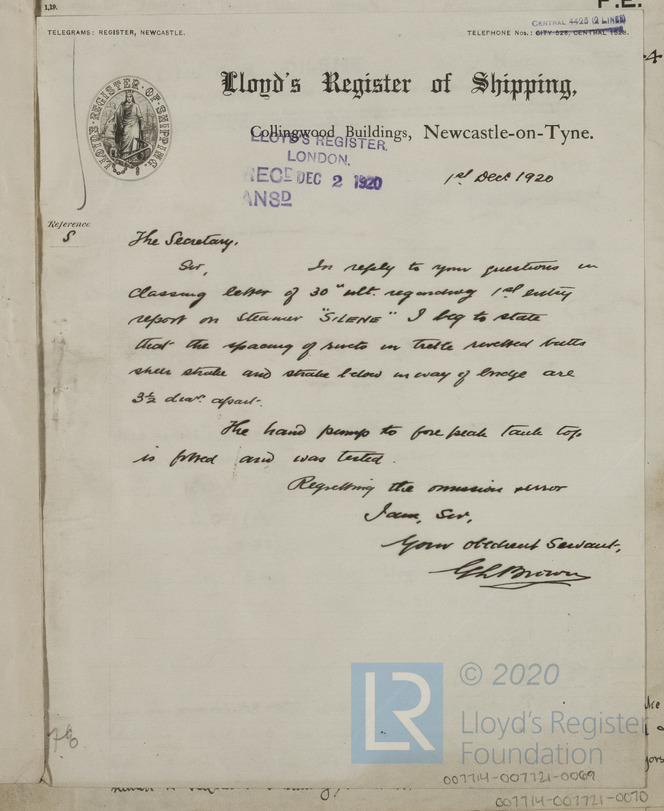 1,19.
P.E.
TELEGRAMS: REGISTER, NEWCASTLE.
CENTRAL 4426 (2 LINES)
TELEPHONE Nos.: CITY 528, CENTRAL 1528.
4
Lloyd's Register of Shipping,
LLOYD'S REGISTER OF SHIPPING.
Collingwood Buildings, Newcastle-on-Tyne.
LLOYD'S REGISTER,
LONDON.
RECD DEC 2 1920
ANSD
1st Decr 1920
Reference
S
The Secretary.
Sir, In reply to your questions in
classing letter of 30th ult. regarding 1st entry
report on steamer "SILENE" I beg to state
that the spacing of rivets in treble rivetted butts
sheer strake and strake below in way of bridge are
3½ diars. apart.
The hand pump to fore peak tank top
is fitted and was tested.
Regretting the omission error
I am, Sir,
Your obedient Servant,
G L Brown
© 2020
LR
Lloyd's Register
Foundation
007714-007721-0069
007714-007721-0070